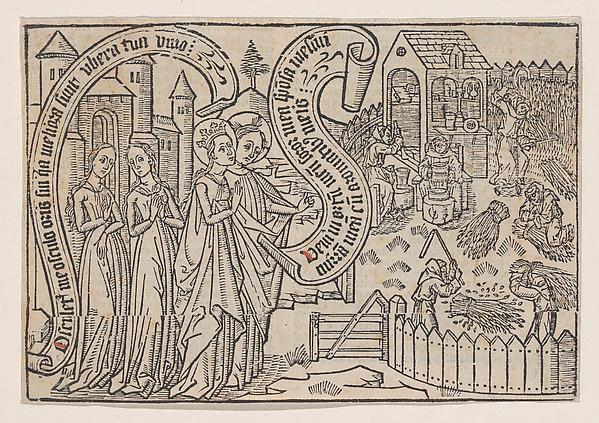 Osculet me osculo oris sui qa meliora sunt vbera tua vino:
Veni in ortū meū soror mea spōsa messui
mirrā meā cū aromatibus meis: